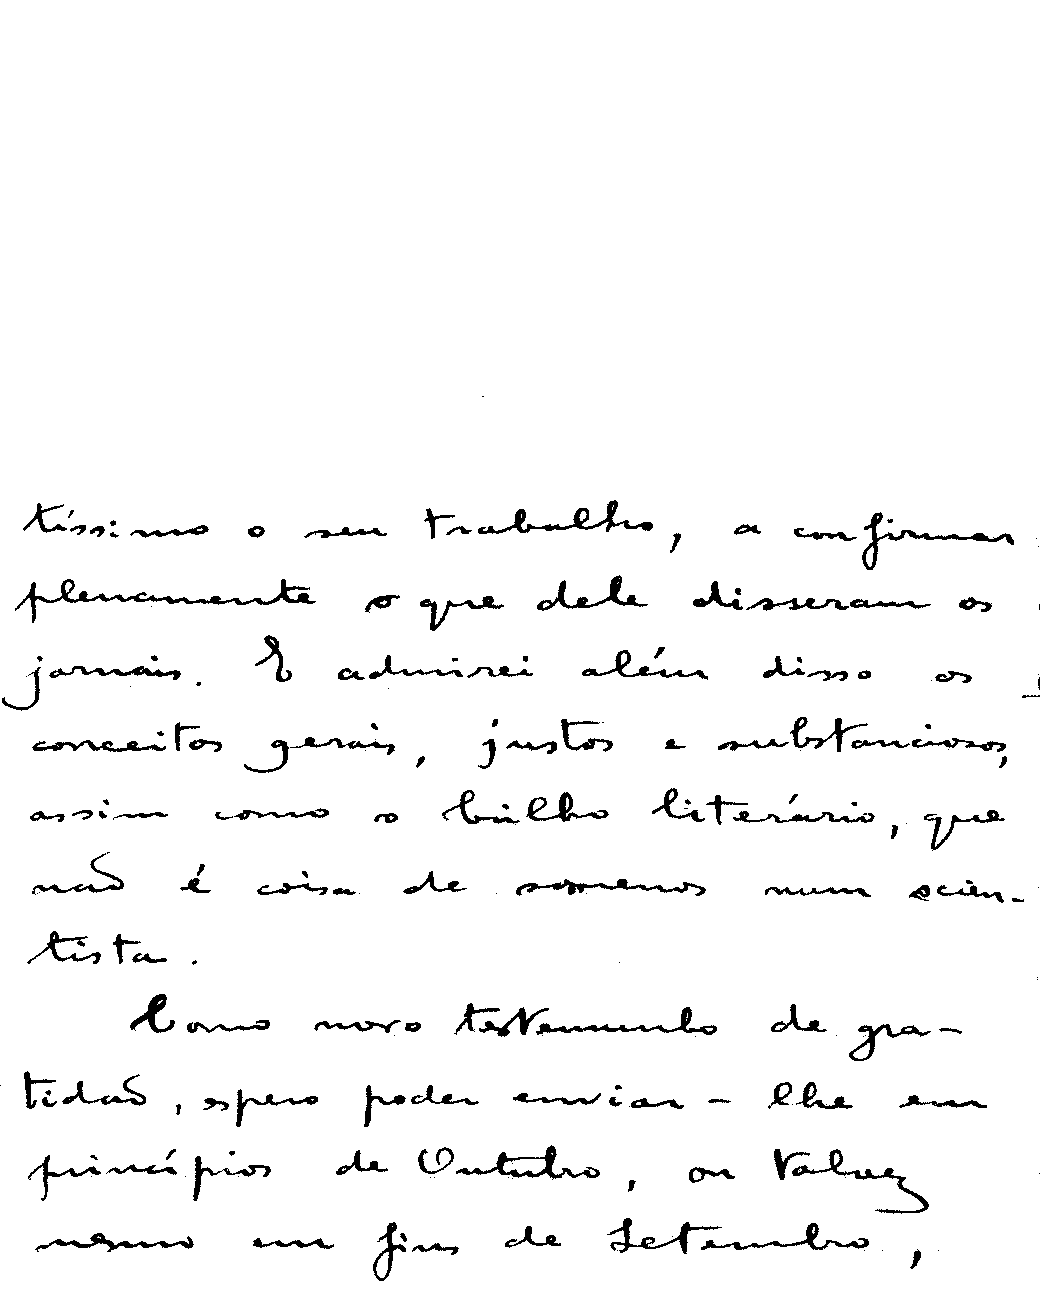 tíssimo o seu trabalho, a confirmar
plenamente o que dele disseram os
jornais. E admirei além disso os
conceitos gerais, justos e substanciosos,
assim como o brilho literário, que
não é coisa de somenos num scien-
tista.
Como novo testemunho de gra-
tidão, espero poder enviar-lhe em
princípios de Outubro, ou talvez
mesmo em fins de Setembro,